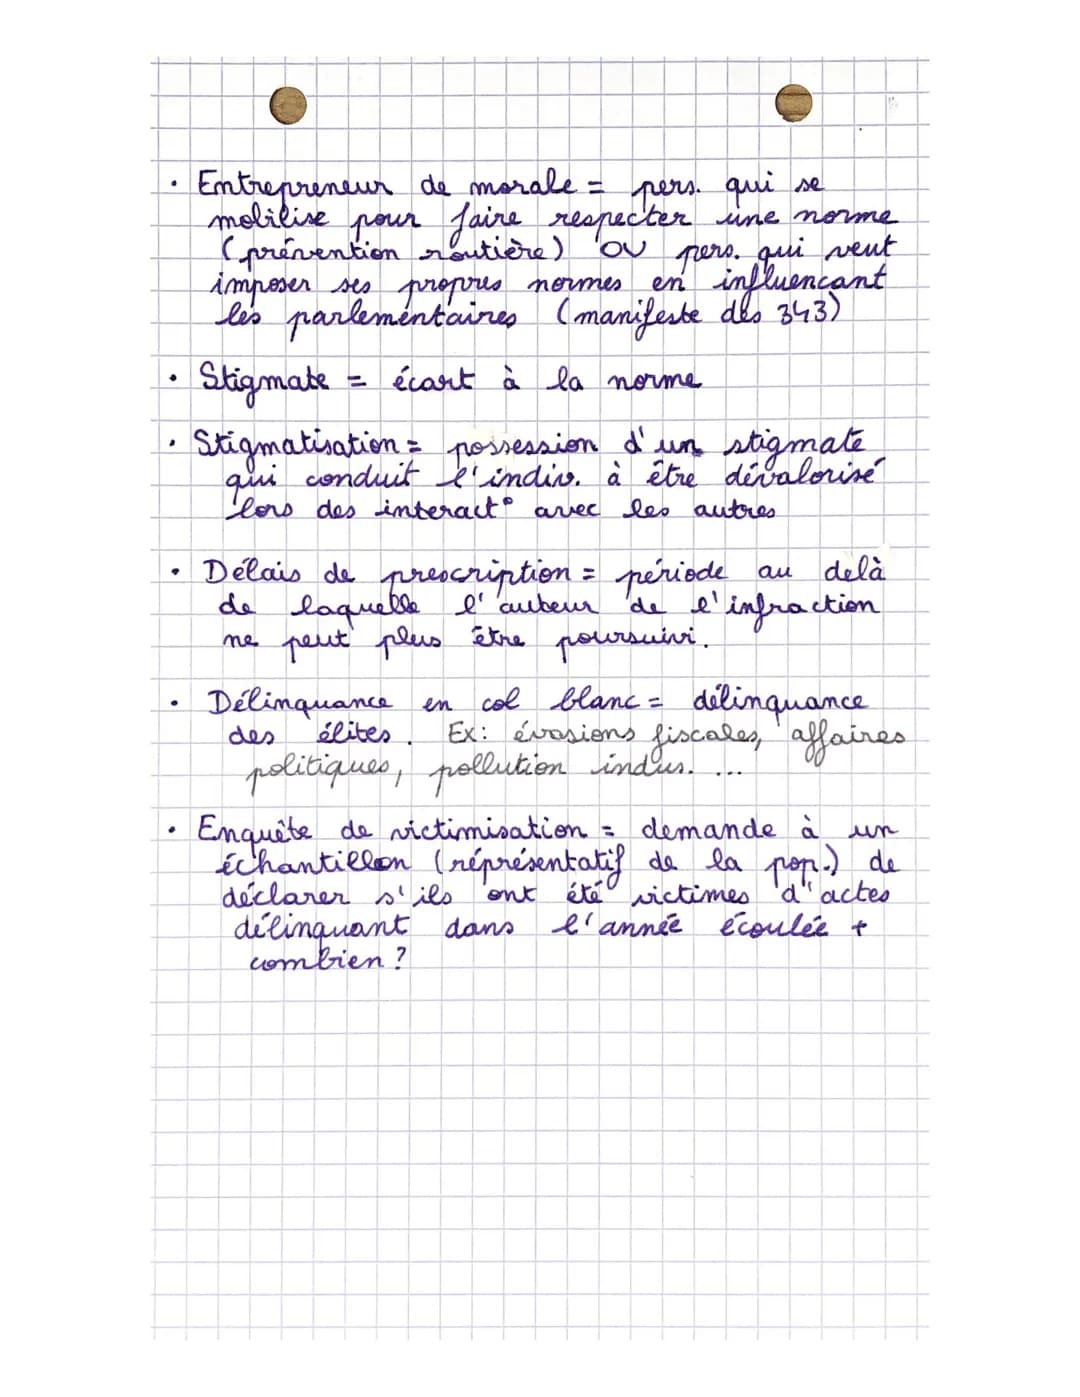 • Entrepreneur de morale = pers. qui se
mobilise pour faire respecter une norme
(prévention routière) OU pers. qui veut
imposer ses propres normes en influencant
les parlementaires (manifeste des 343)
• Stigmate = écart à la norme
• Stigmatisation = possession d'un stigmate
qui conduit l'indiv. à être dévalorisé
lors des interact° avec les autres
• Délais de prescription = période au delà
de laquelle l'auteur de l'infraction
ne peut plus être poursuivi.
• Délinquance en col blanc = délinquance
des élites. Ex: évasions fiscales, affaires
politiques, pollution indus. ...
• Enquête de victimisation = demande à un
échantillon (réprésentatif de la pop.) de
déclarer s'ils ont été victimes d'actes
délinquant dans l'année écoulée +
combien ?